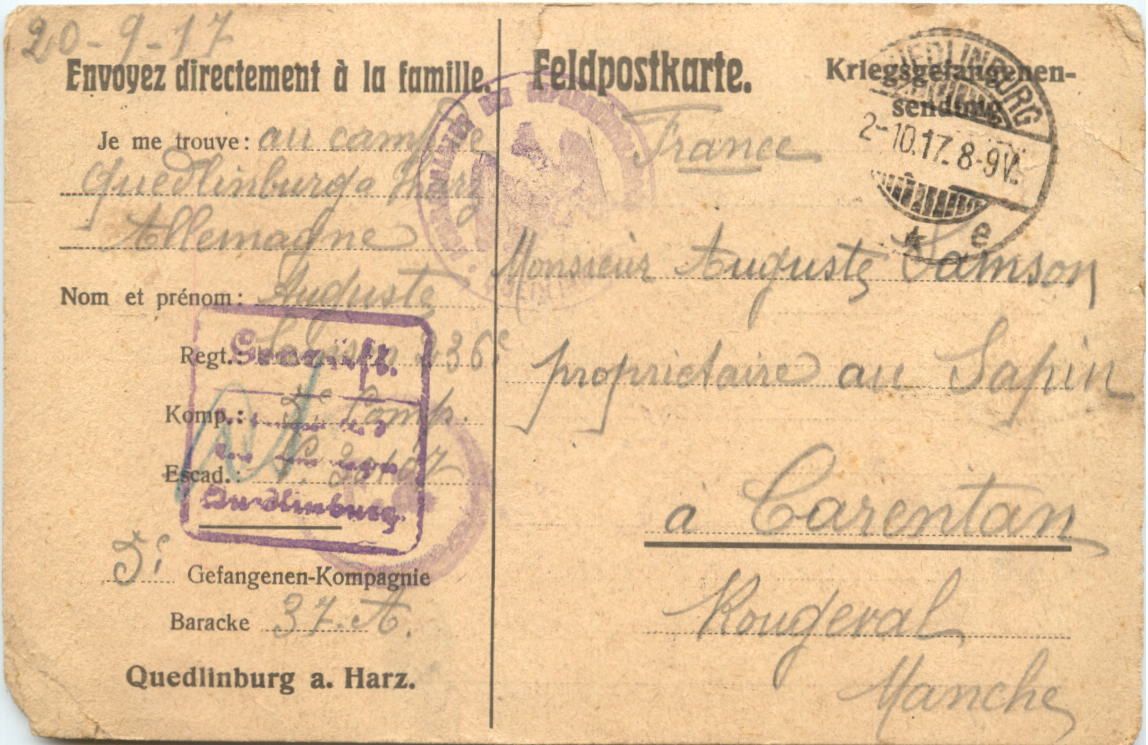 20-9-17
Envoyez directement à la famille.
Je me trouve: au camp de
Quedlinburg a Harz
Allemagne
Nom et prénom: Auguste
Regt.: Samson 236e
Komp.: Comp.
Escad.:
Geprüft.
Quedlinburg.
5e Gefangenen-Kompagnie
Baracke 37. A.
Quedlinburg a. Harz.
Feldpostkarte.
Kriegsgefangenen-
sendung
QUEDLINBURG
2-10.17. 8-9V.
* e
France
Monsieur Auguste Samson
propriétaire au Sapin
à Carentan
Rougeval
Manche